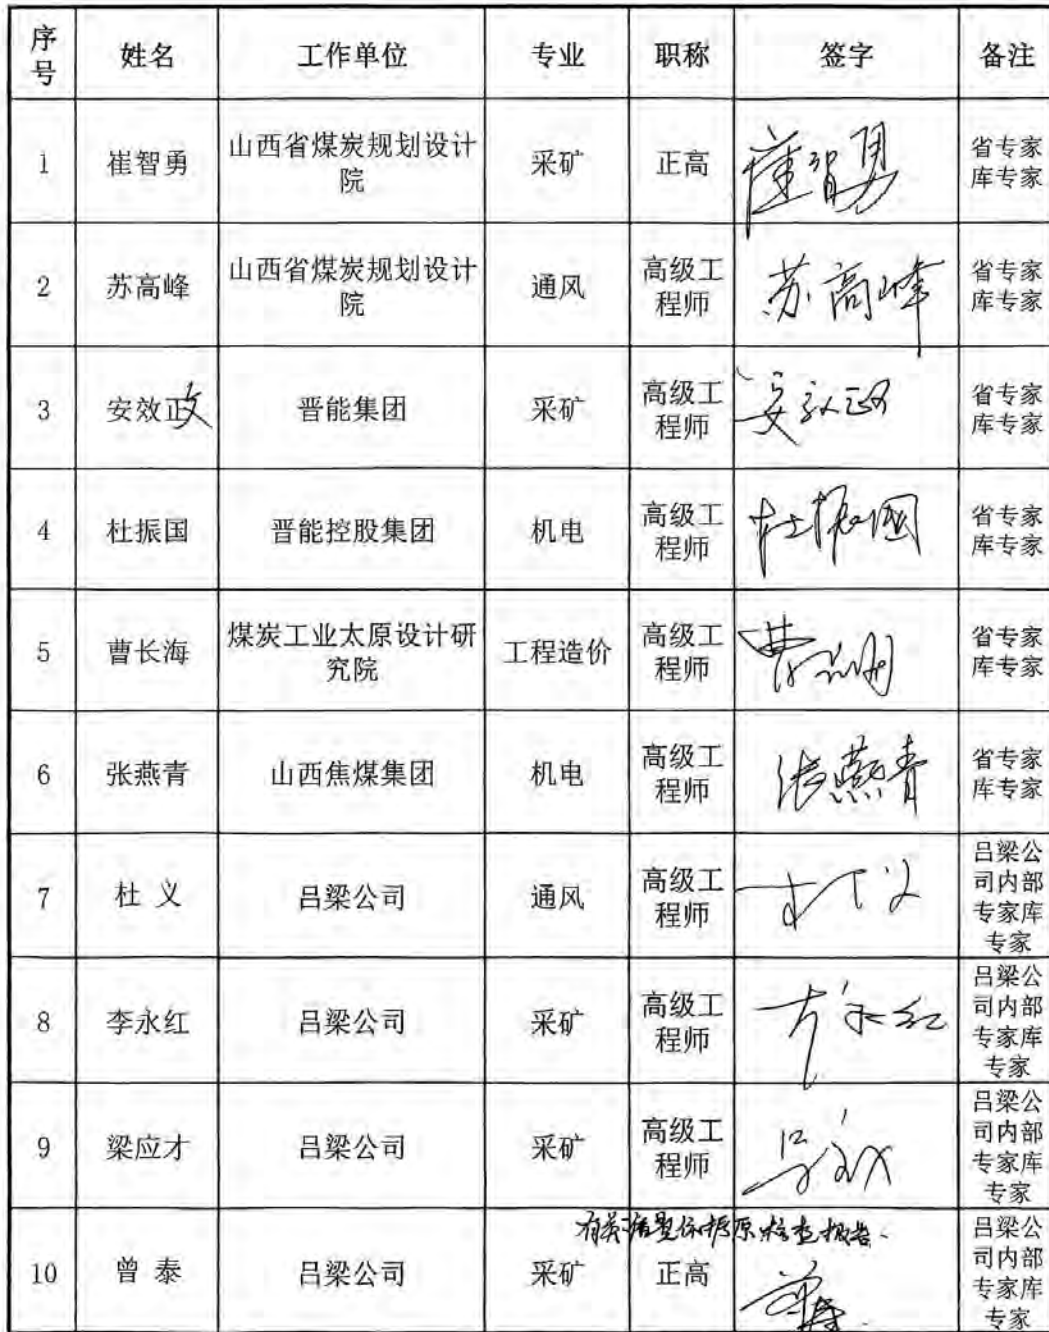 序号 姓名 工作单位 专业 职称 签字 备注
1 崔智勇 山西省煤炭规划设计院 采矿 正高 崔智勇 省专家库专家
2 苏高峰 山西省煤炭规划设计院 通风 高级工程师 苏高峰 省专家库专家
3 安效正文 晋能集团 采矿 高级工程师 省专家库专家
4 杜振国 晋能控股集团 机电 高级工程师 杜振国 省专家库专家
5 曹长海 煤炭工业太原设计研究院 工程造价 高级工程师 省专家库专家
6 张燕青 山西焦煤集团 机电 高级工程师 张燕青 省专家库专家
7 杜 义 吕梁公司 通风 高级工程师 杜义 吕梁公司内部专家库专家
8 李永红 吕梁公司 采矿 高级工程师 李永红 吕梁公司内部专家库专家
9 梁应才 吕梁公司 采矿 高级工程师 吕梁公司内部专家库专家
原检查报告
10 曾 泰 吕梁公司 采矿 正高 吕梁公司内部专家库专家